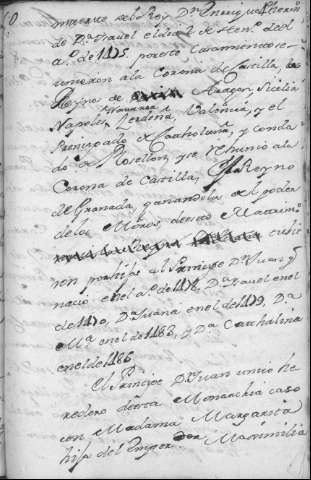 muerte del Rey Dn Enriq
de Dª Isavel el dia
aº de 1475 por este Casamiento
vinieron a la Corona de Castilla los
Reynos de Navarra Aragon, Sicilia
Napoles, Cerdeña, Valencia, y el
Principado de Cathaluña, y conda
do de Rosellon, y se reunio a la
Corona de Castilla, el Reyno
de Granada, ganandolo de poder
de los Moros, de este Matrimº
tuvie
ron por hijo al Principe Dn Juan q
nacio en el aº de 1478. Dª Isavel en el
de 1470, Dª Juana en el de 1479, Dª
Mª en el de 1483, y Dª Cathalina
en el de 1486
El Principe Dn Juan unico he
redero de esta Monarchia caso
con Madama Margarita
hija del Emperador Maximilia